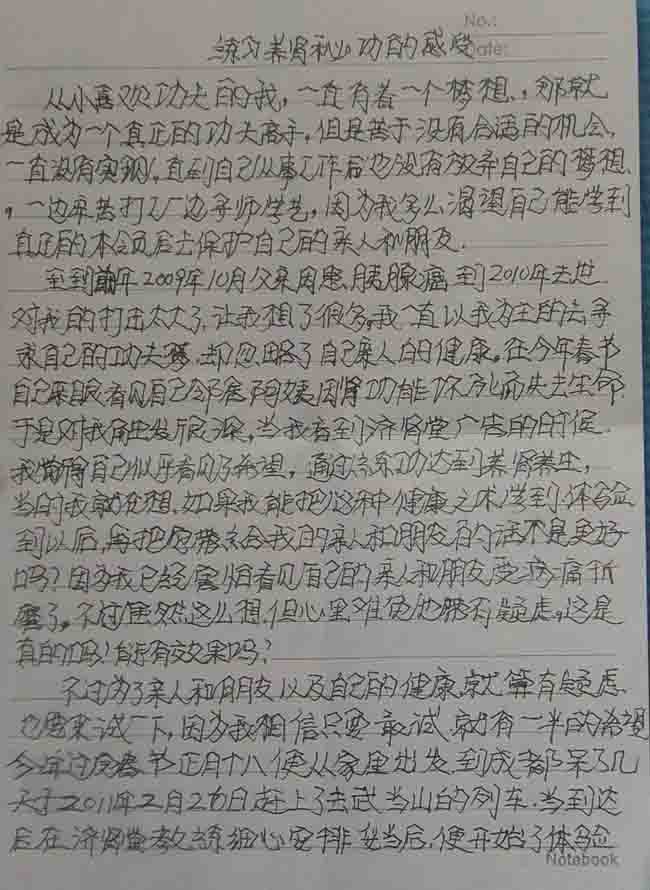 No.:
Date:
练习养肾秘功的感受
从小喜欢功夫的我，一直有着一个梦想，那就
是成为一个真正的功夫高手，但是苦于没有合适的机会，
一直没有实现，直到自己从事工作后也没有放弃自己的梦想
，一边来苦打工厂边寻师学艺，因为我多么渴望自己能学到
真正的本领后去保护自己的亲人和朋友．
至到前年2009年10月父亲因患胰腺癌到2010年去世
对我的打击太大了，让我想了很多，我一直以我为主的去寻
求自己的功夫梦，却忽略了自己亲人的健康。在今年春节
自己亲眼看见自己邻居阿姨因肾功能坏死而失去生命，
于是对我触发很深，当我看到济肾堂广告的时候．
我觉得自己似乎看见了希望，通过练功达到养肾养生，
当时我就在想，如果我能把这种健康之术学到，体验
到以后，再把它带给我的亲人和朋友的话不是更好
吗？因为我已经害怕看见自己的亲人和朋友受病痛折
磨了。不过虽然这么想，但心里难免也带有疑虑，这是
真的吗！能有效果吗？
不过为了亲人和朋友以及自己的健康，就算有疑虑、
也要来试一下，因为我相信只要敢试，就有一半的希望
今年过完春节正月十八便从家里出发，到成都呆了几
天于2011年2月26日赶上了去武当山的列车．当到达
后在济肾堂教练细心安排妥当后，便开始了体验
Notebook